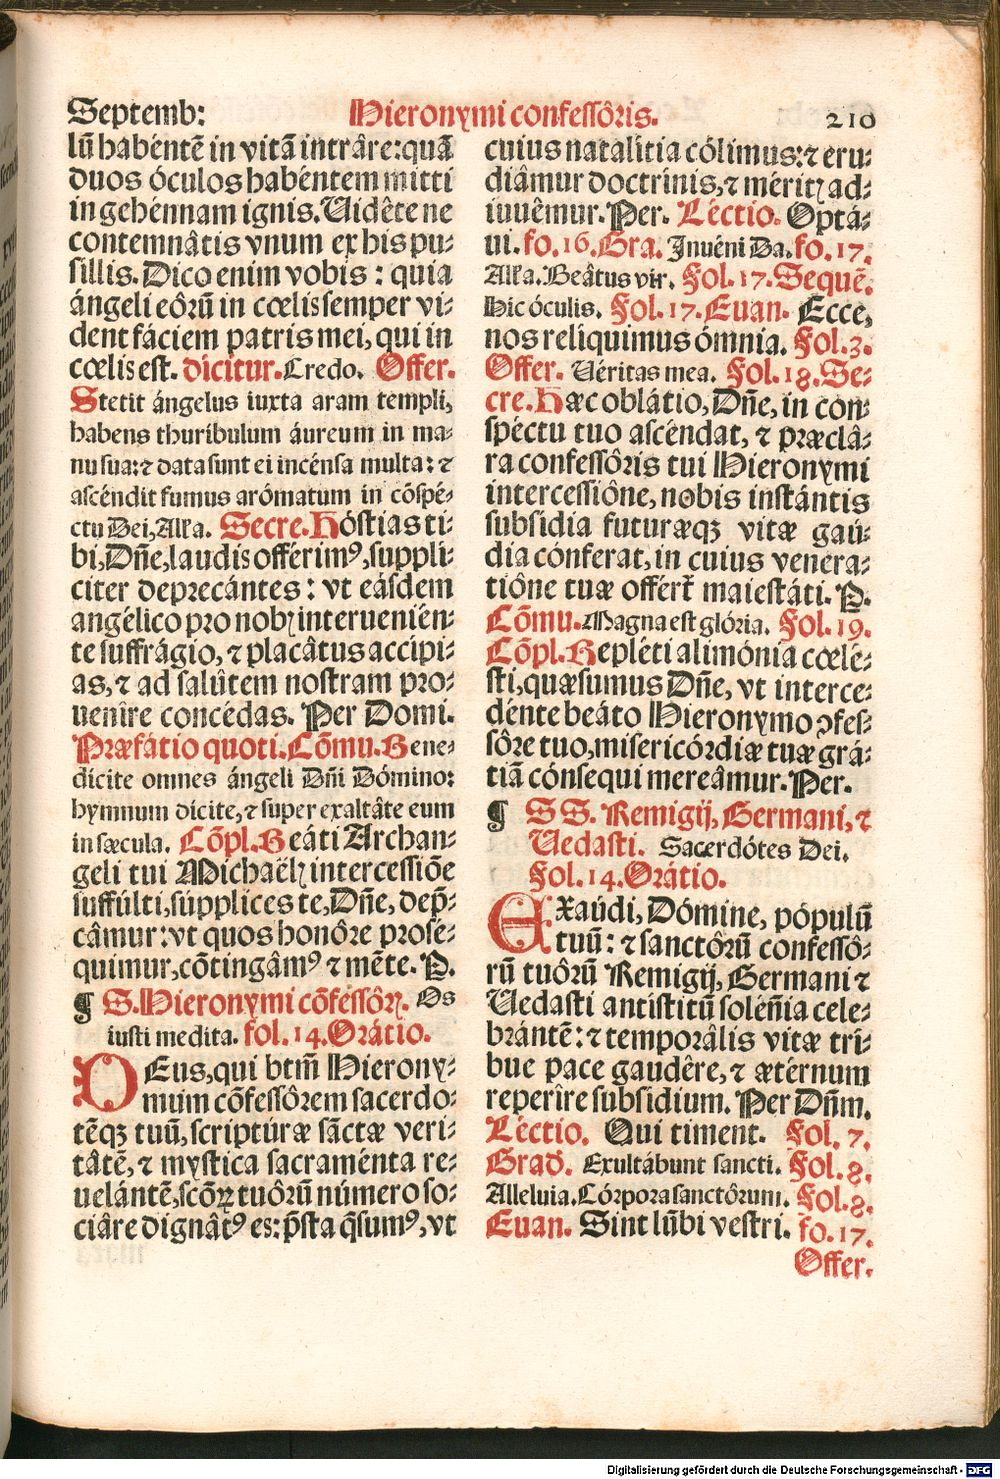 Septemb: Hieronymi confessôris. 210
lũ habéntẽ in vitã intrâre: quã
duos óculos habéntem mitti
in gehénnam ignis. Vidête ne
contemnâtis vnum ex his pu-
sillis. Dico enim vobis : quia
ángeli eôrũ in cœlis semper vi-
dent fáciem patris mei, qui in
cœlis est. dicitur. Credo. Offer.
Stetit ángelus iuxta aram templi,
habens thuríbulum áureum in ma-
nu sua: ⁊ data sunt ei incénsa multa: ⁊
ascéndit fumus arómatum in cõspé-
ctu Dei, Alľa. Secre. Hóstias ti-
bi, Dñe, laudis offérimꝰ, suppli-
citer deprecántes : vt eásdem
angélico pro nobꝭ interuenién-
te suffrágio, ⁊ placâtus accípi-
as, ⁊ ad salûtem nostram pro-
uenîre concédas. Per Domi.
Præfatio quoti. Cõmu. Bene-
dícite omnes ángeli Dñi Dóminо:
hymnum dícite, ⁊ super exaltâte eum
in sæcula. Cõpl. Beáti Archan-
geli tui Michaëlꝭ intercessiõe
suffúlti, súpplices te, Dñe, dep̃-
câmur: vt quos honôre prosé-
quimur, cõtingâmꝰ ⁊ mẽte. P.
¶ S. Hieronymi cõfessôꝝ. Os
iusti medita. fol. 14. Orátio.
DEus, qui btm̃ Hierony-
mum cõfessôrem sacerdo-
tẽqꝫ tuũ, scriptúræ sãctæ veri-
tâtẽ, ⁊ mýstica sacraménta re-
uelántẽ, scõꝝ tuôrũ número so-
ciâre dignâtꝰ es: p̃sta q̃sumꝰ, vt
cuius natalítia cólimus: ⁊ eru-
diâmur doctrínis, ⁊ méritꝭ ad-
iuuêmur. Per. Léctio. Optá-
ui. fo. 16. Gra. Inuéni Da. fo. 17.
Alľa. Beâtus vir. Fol. 17. Sequẽ.
Hic óculis. Fol. 17. Euan. Ecce,
nos relíquimus ómnia. Fol. 3.
Offer. Véritas mea. Fol. 18. Se-
cre. Hæc oblátio, Dñe, in con-
spéctu tuo ascéndat, ⁊ præclâ-
ra confessôris tui Hieronymi
intercessiône, nobis instántis
subsídia futuræqꝫ vitæ gaú-
dia cónferat, in cuius venera-
tiône tuæ offért̃ maiestáti. P.
Cõmu. Magna est glória. Fol. 19.
Cõpl. Repléti alimónia cœlé-
sti, quæsumus Dñe, vt interce-
dénte beáto Hieronymo ↄfes-
sôre tuo, misericórdiæ tuæ grá-
tiã cónsequi mereâmur. Per.
¶ SS. Remigij, Germani, ⁊
Vedasti. Sacerdótes Dei.
Fol. 14. Orátio.
EXaúdi, Dómine, pópulũ
tuũ: ⁊ sanctôrũ confessô-
rũ tuôrũ Remigij, Germani ⁊
Vedasti antístitũ solẽnia cele-
brántẽ: ⁊ temporâlis vitæ trí-
bue pace gaudêre, ⁊ ætérnum
reperîre subsídium. Per Dñm.
Léctio. Qui timent. Fol. 7.
Grad. Exultábunt sancti. Fol. 8.
Alleluia. Córpora sanctôrum. Fol. 8.
Euan. Sint lũbi vestri. fo. 17.
Offer.
Digitalisierung gefördert durch die Deutsche Forschungsgemeinschaft - DFG